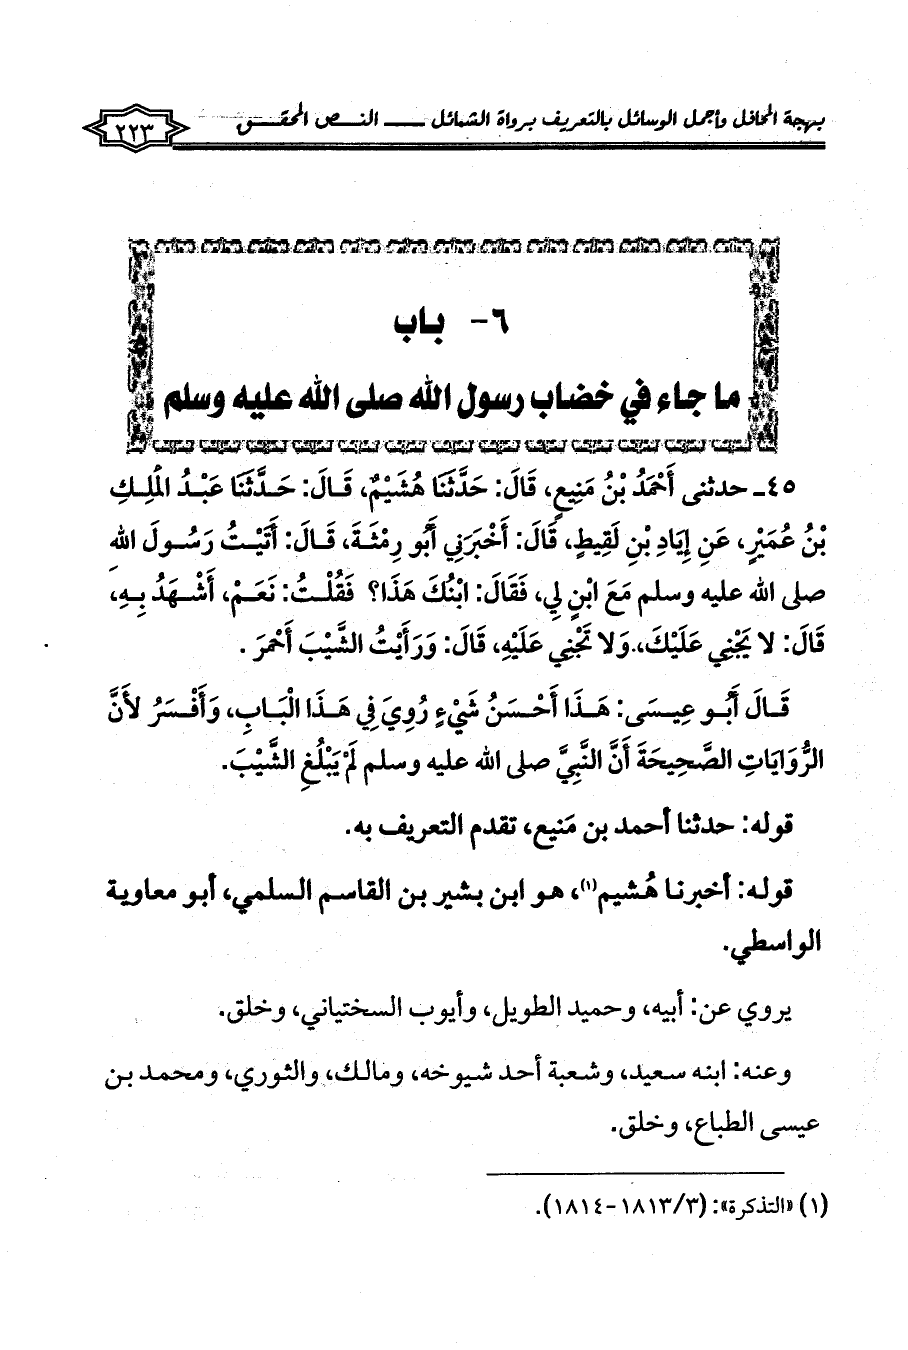 بهجة المحافل وأجمل الوسائل بالتعريف برواة الشمائل ــــ النـص المحقـق
٢٢٣
٦- باب
ما جاء في خضاب رسول الله صلى الله عليه وسلم
٤٥ـ حدثنى أَحْمَدُ بْنُ مَنِيعٍ، قَالَ: حَدَّثَنَا هُشَيْمٌ، قَـالَ: حَـدَّثَنَا عَبْـدُ الْمَلِـكِ
بْنُ عُمَيْرٍ، عَنِ إِيَادِ بْنِ لَقِيطٍ، قَالَ: أَخْبَرَنِي أَبُو رِمْثَـةَ، قَـالَ: أَتَيْـتُ رَسُـولَ اللهِ
صلى الله عليه وسلم مَعَ ابْنٍ لِي، فَقَالَ: ابْنُكَ هَذَا؟ فَقُلْـتُ: نَعَـمْ، أَشْـهَدُ بِـهِ،
قَالَ: لا يَجْنِي عَلَيْكَ، وَلا تَجْنِي عَلَيْهِ، قَالَ: وَرَأَيْتُ الشَّيْبَ أَحْمَرَ .
قَـالَ أَبُـو عِيسَى: هَـذَا أَحْسَنُ شَيْءٍ رُوِيَ فِي هَـذَا الْبَـابِ، وَأَفْسَرُ لأَنَّ
الرُّوَايَاتِ الصَّحِيحَةَ أَنَّ النَّبِيَّ صلى الله عليه وسلم لَمْ يَبْلُغِ الشَّيْبَ.
قوله: حدثنا أحمد بن مَنيع، تقدم التعريف به.
قولـه: أخبرنـا هُشيم(١)، هـو ابن بشير بـن القاسـم السلمي، أبـو معاوية
الواسطي.
يروي عن: أبيه، وحميد الطويل، وأيوب السختياني، وخلق.
وعنه: ابنه سعيد، وشعبة أحد شيوخه، ومالك، والثوري، ومحمد بن
عيسى الطباع، وخلق.
(١) «التذكرة»: (٣/ ١٨١٣-١٨١٤).